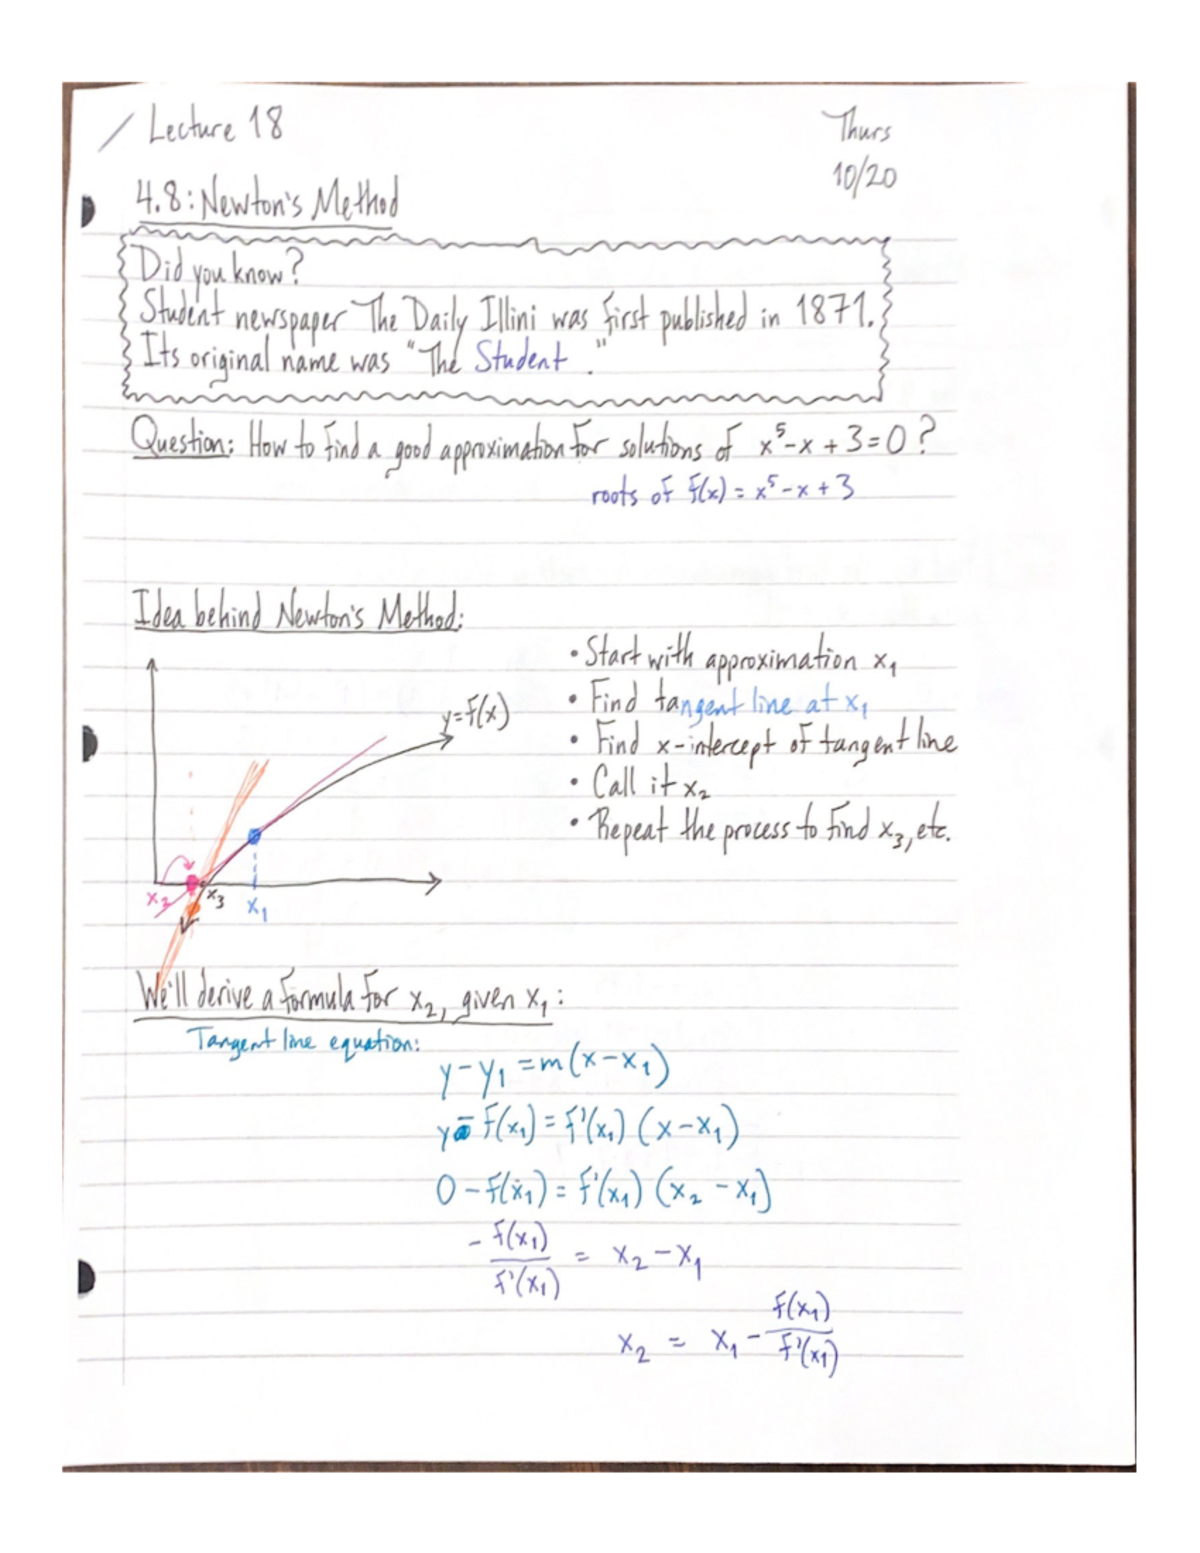 Lecture 18
Thurs
10/20
4.8: Newton's Method
Did you know?
Student newspaper The Daily Illini was first published in 1871.
Its original name was "The Student."
Question: How to find a good approximation for solutions of x⁵-x+3=0?
roots of f(x) = x⁵-x+3
Idea behind Newton's Method:
• Start with approximation x₁
• Find tangent line at x₁
• Find x-intercept of tangent line
• Call it x₂
• Repeat the process to find x₃, etc.
y=f(x)
x₂ x₃ x₁
We'll derive a formula for x₂, given x₁:
Tangent line equation:
y-y₁ = m(x-x₁)
y-f(x₁) = f'(x₁) (x-x₁)
0-f(x₁) = f'(x₁) (x₂-x₁)
-f(x₁)/f'(x₁) = x₂-x₁
x₂ = x₁-f(x₁)/f'(x₁)